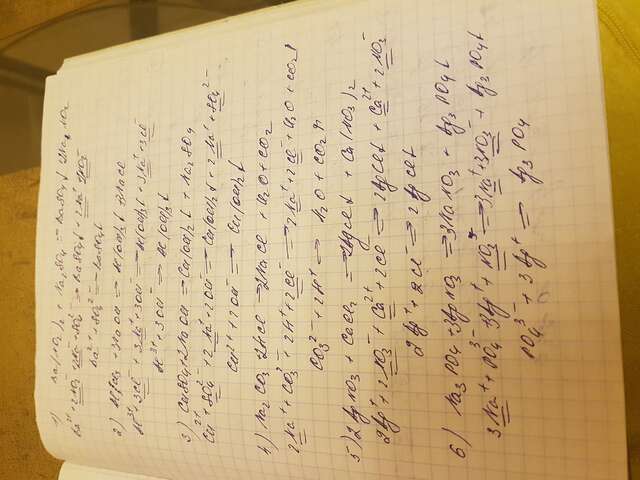 1) Ba(NO₃)₂ + Na₂SO₄ → BaSO₄↓ 2NaNO₃
Ba²⁺ + 2NO₃⁻ + 2Na⁺ + SO₄²⁻ → BaSO₄↓ + 2Na⁺ 2NO₃⁻
Ba²⁺ + SO₄²⁻ → BaSO₄↓
2) AlCl₃ + 3NaOH → Al(OH)₃↓ + 3NaCl
Al³⁺ 3Cl⁻ + 3Na⁺ + 3OH⁻ → Al(OH)₃↓ + 3Na⁺ + 3Cl⁻
Al³⁺ + 3OH⁻ → Al(OH)₃↓
3) CuSO₄ + 2NaOH → Cu(OH)₂↓ + Na₂SO₄
Cu²⁺ + SO₄²⁻ + 2Na⁺ + 2OH⁻ → Cu(OH)₂↓ + 2Na⁺ + SO₄²⁻
Cu²⁺ + 2OH⁻ → Cu(OH)₂↓
4) Na₂CO₃ + 2HCl → 2NaCl + H₂O + CO₂
2Na⁺ + CO₃²⁻ + 2H⁺ + 2Cl⁻ → 2Na⁺ + 2Cl⁻ + H₂O + CO₂↑
CO₃²⁻ + 2H⁺ → H₂O + CO₂↑
5) 2AgNO₃ + CaCl₂ → 2AgCl↓ + Ca(NO₃)₂
2Ag⁺ + 2NO₃⁻ + Ca²⁺ + 2Cl⁻ → 2AgCl↓ + Ca²⁺ + 2NO₃⁻
2Ag⁺ + 2Cl⁻ → 2AgCl↓
6) Na₃PO₄ + 3AgNO₃ → 3NaNO₃ + Ag₃PO₄↓
3Na⁺ + PO₄³⁻ 3Ag⁺ + NO₃⁻ → 3Na⁺ + 3NO₃⁻ + Ag₃PO₄↓
PO₄³⁻ + 3Ag⁺ → Ag₃PO₄